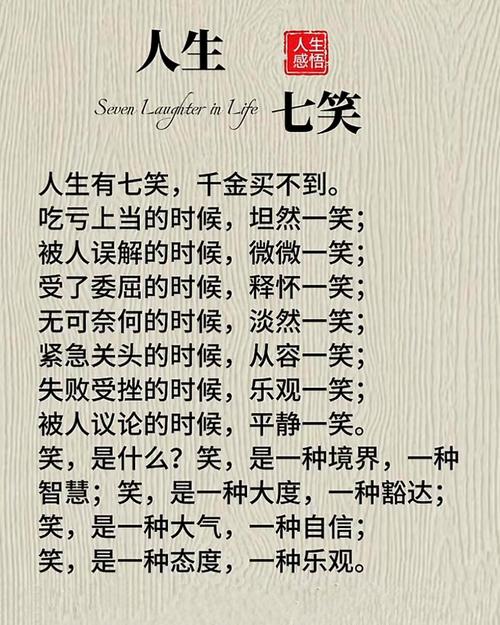 人生
人生
感悟
Seven Laughter in Life
七笑
人生有七笑，千金买不到。
吃亏上当的时候，坦然一笑；
被人误解的时候，微微一笑；
受了委屈的时候，释怀一笑；
无可奈何的时候，淡然一笑；
紧急关头的时候，从容一笑；
失败受挫的时候，乐观一笑；
被人议论的时候，平静一笑。
笑，是什么？笑，是一种境界，一种
智慧；笑，是一种大度，一种豁达；
笑，是一种大气，一种自信；
笑，是一种态度，一种乐观。